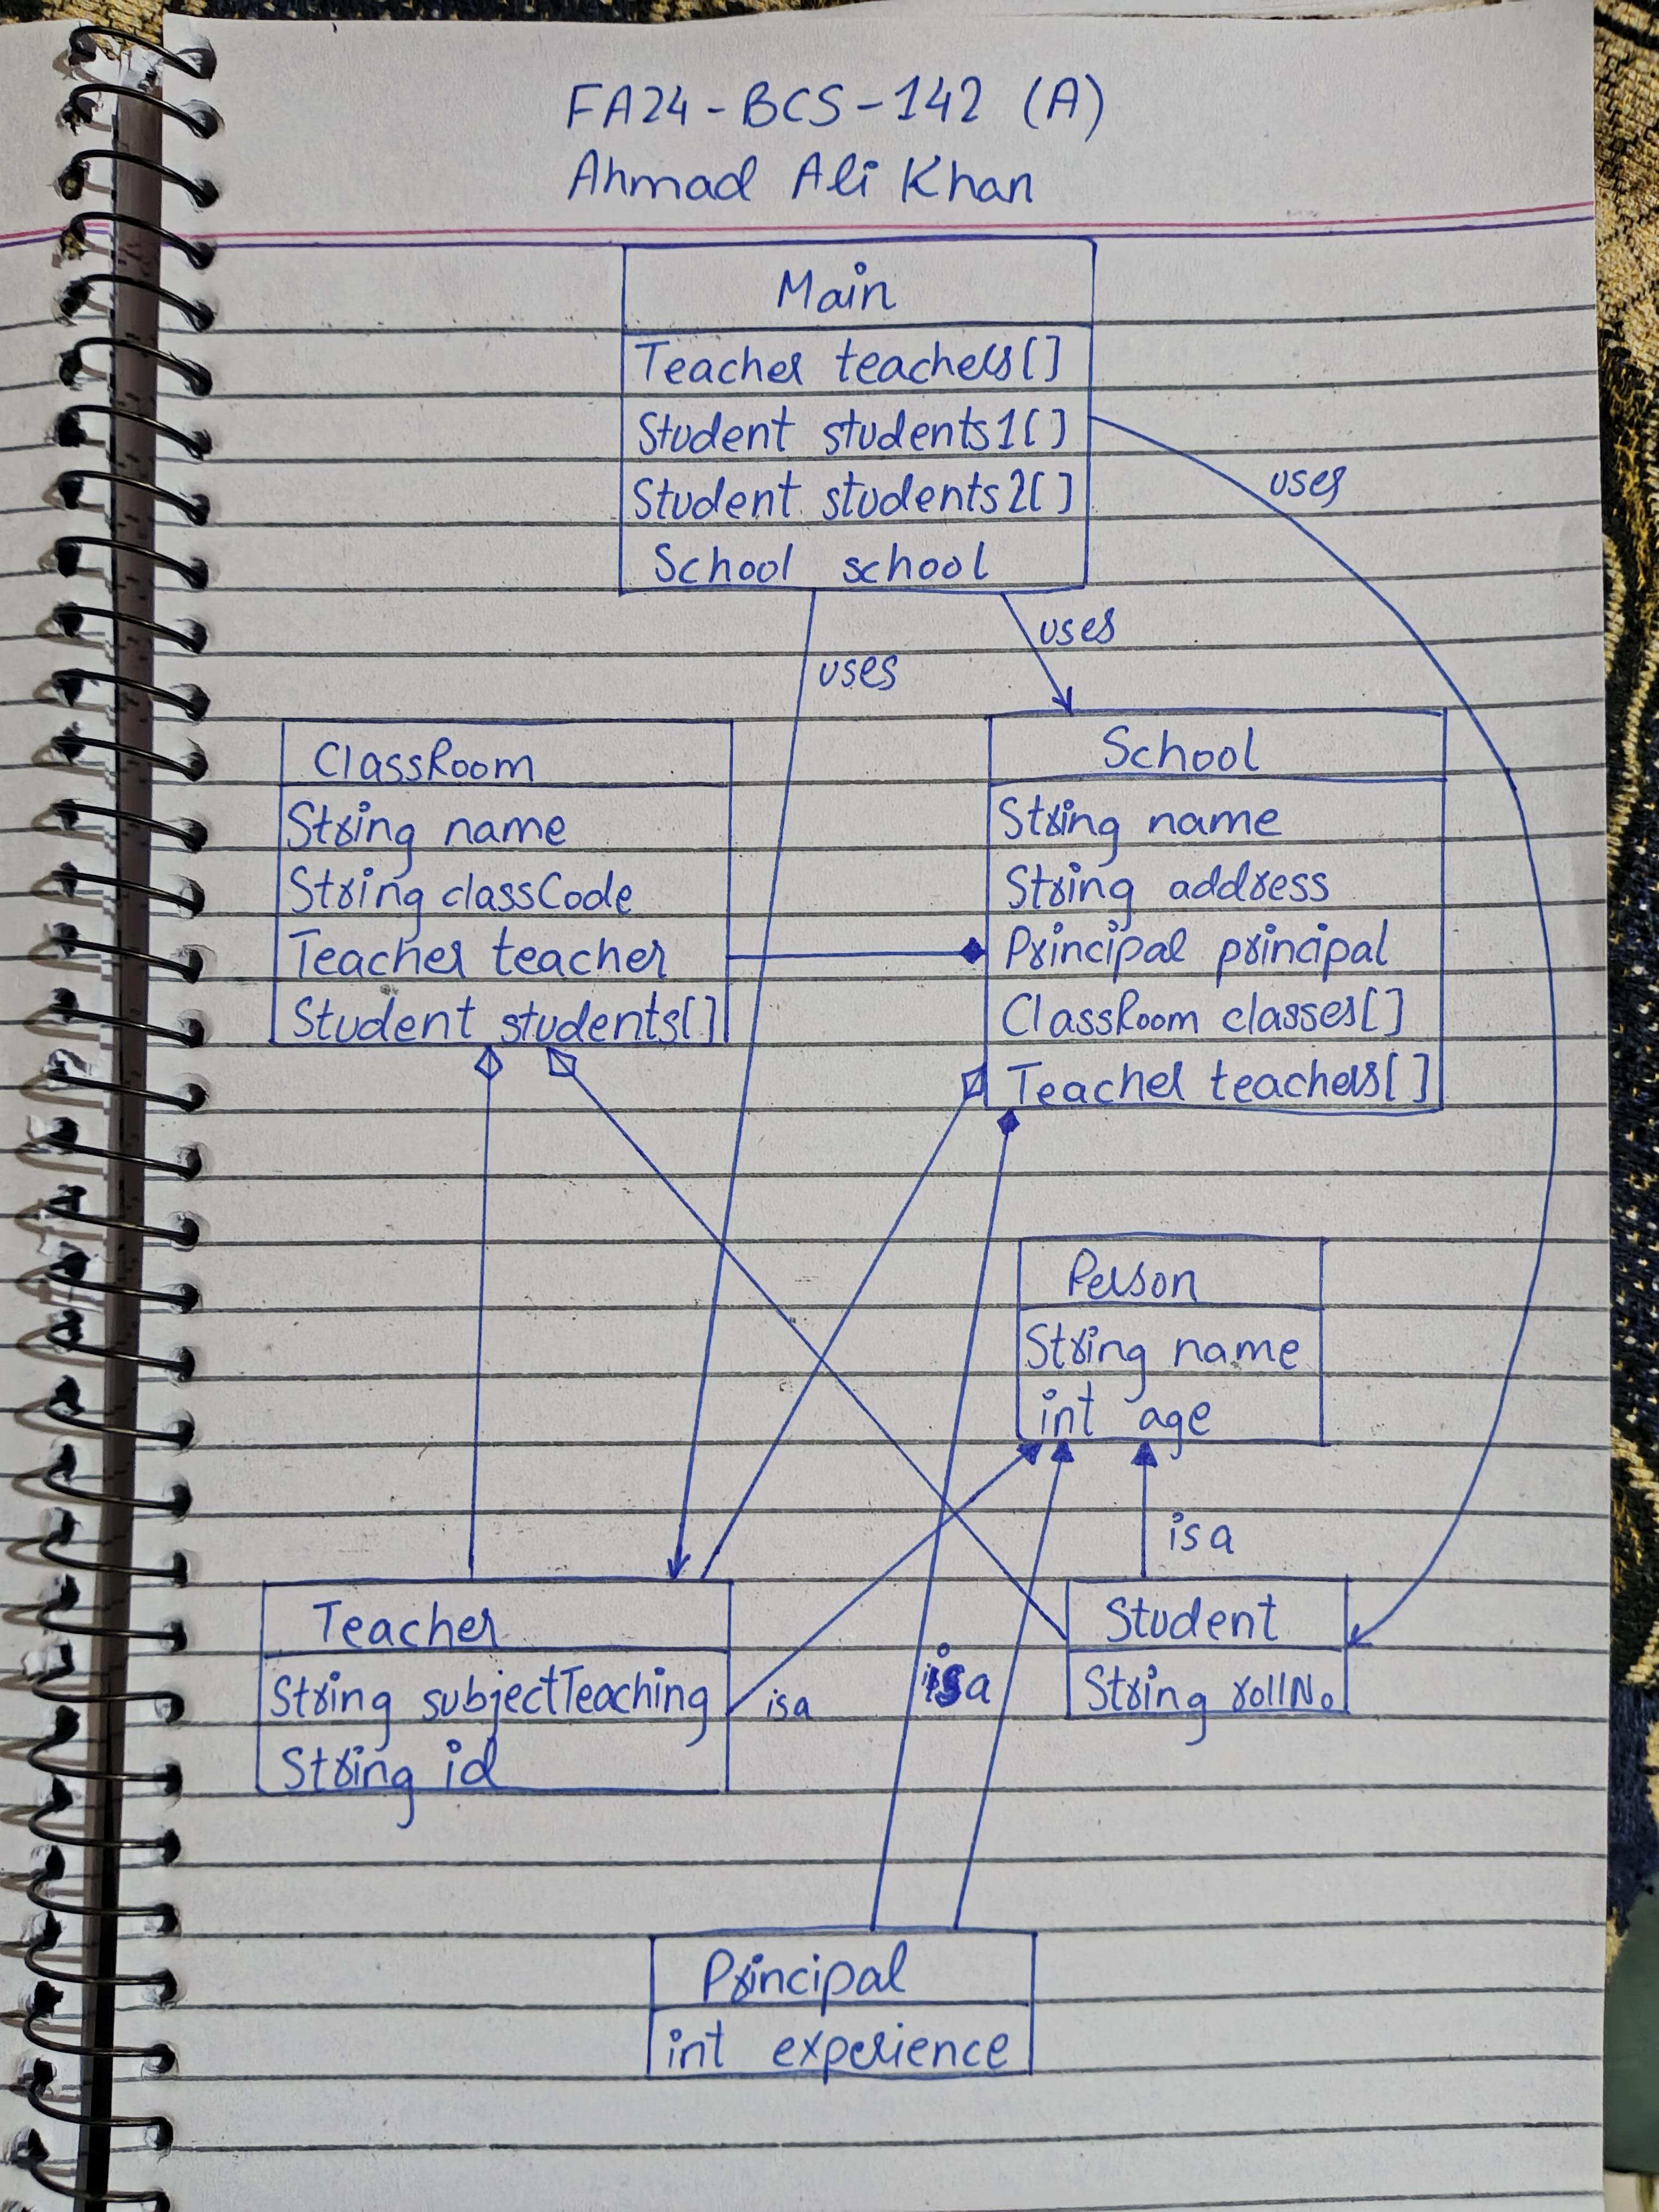 FA24-BCS-142 (A)
Ahmad Ali Khan
Main
Teacher teachers[]
Student students1[]
Student students2[]
School school
uses
uses
uses
ClassRoom
String name
String classCode
Teacher teacher
Student students[]
School
String name
String address
Principal principal
ClassRoom classes[]
Teacher teachers[]
Person
String name
int age
is a
Teacher
String subjectTeaching
String id
is a
is a
Student
String rollNo
Principal
int experience